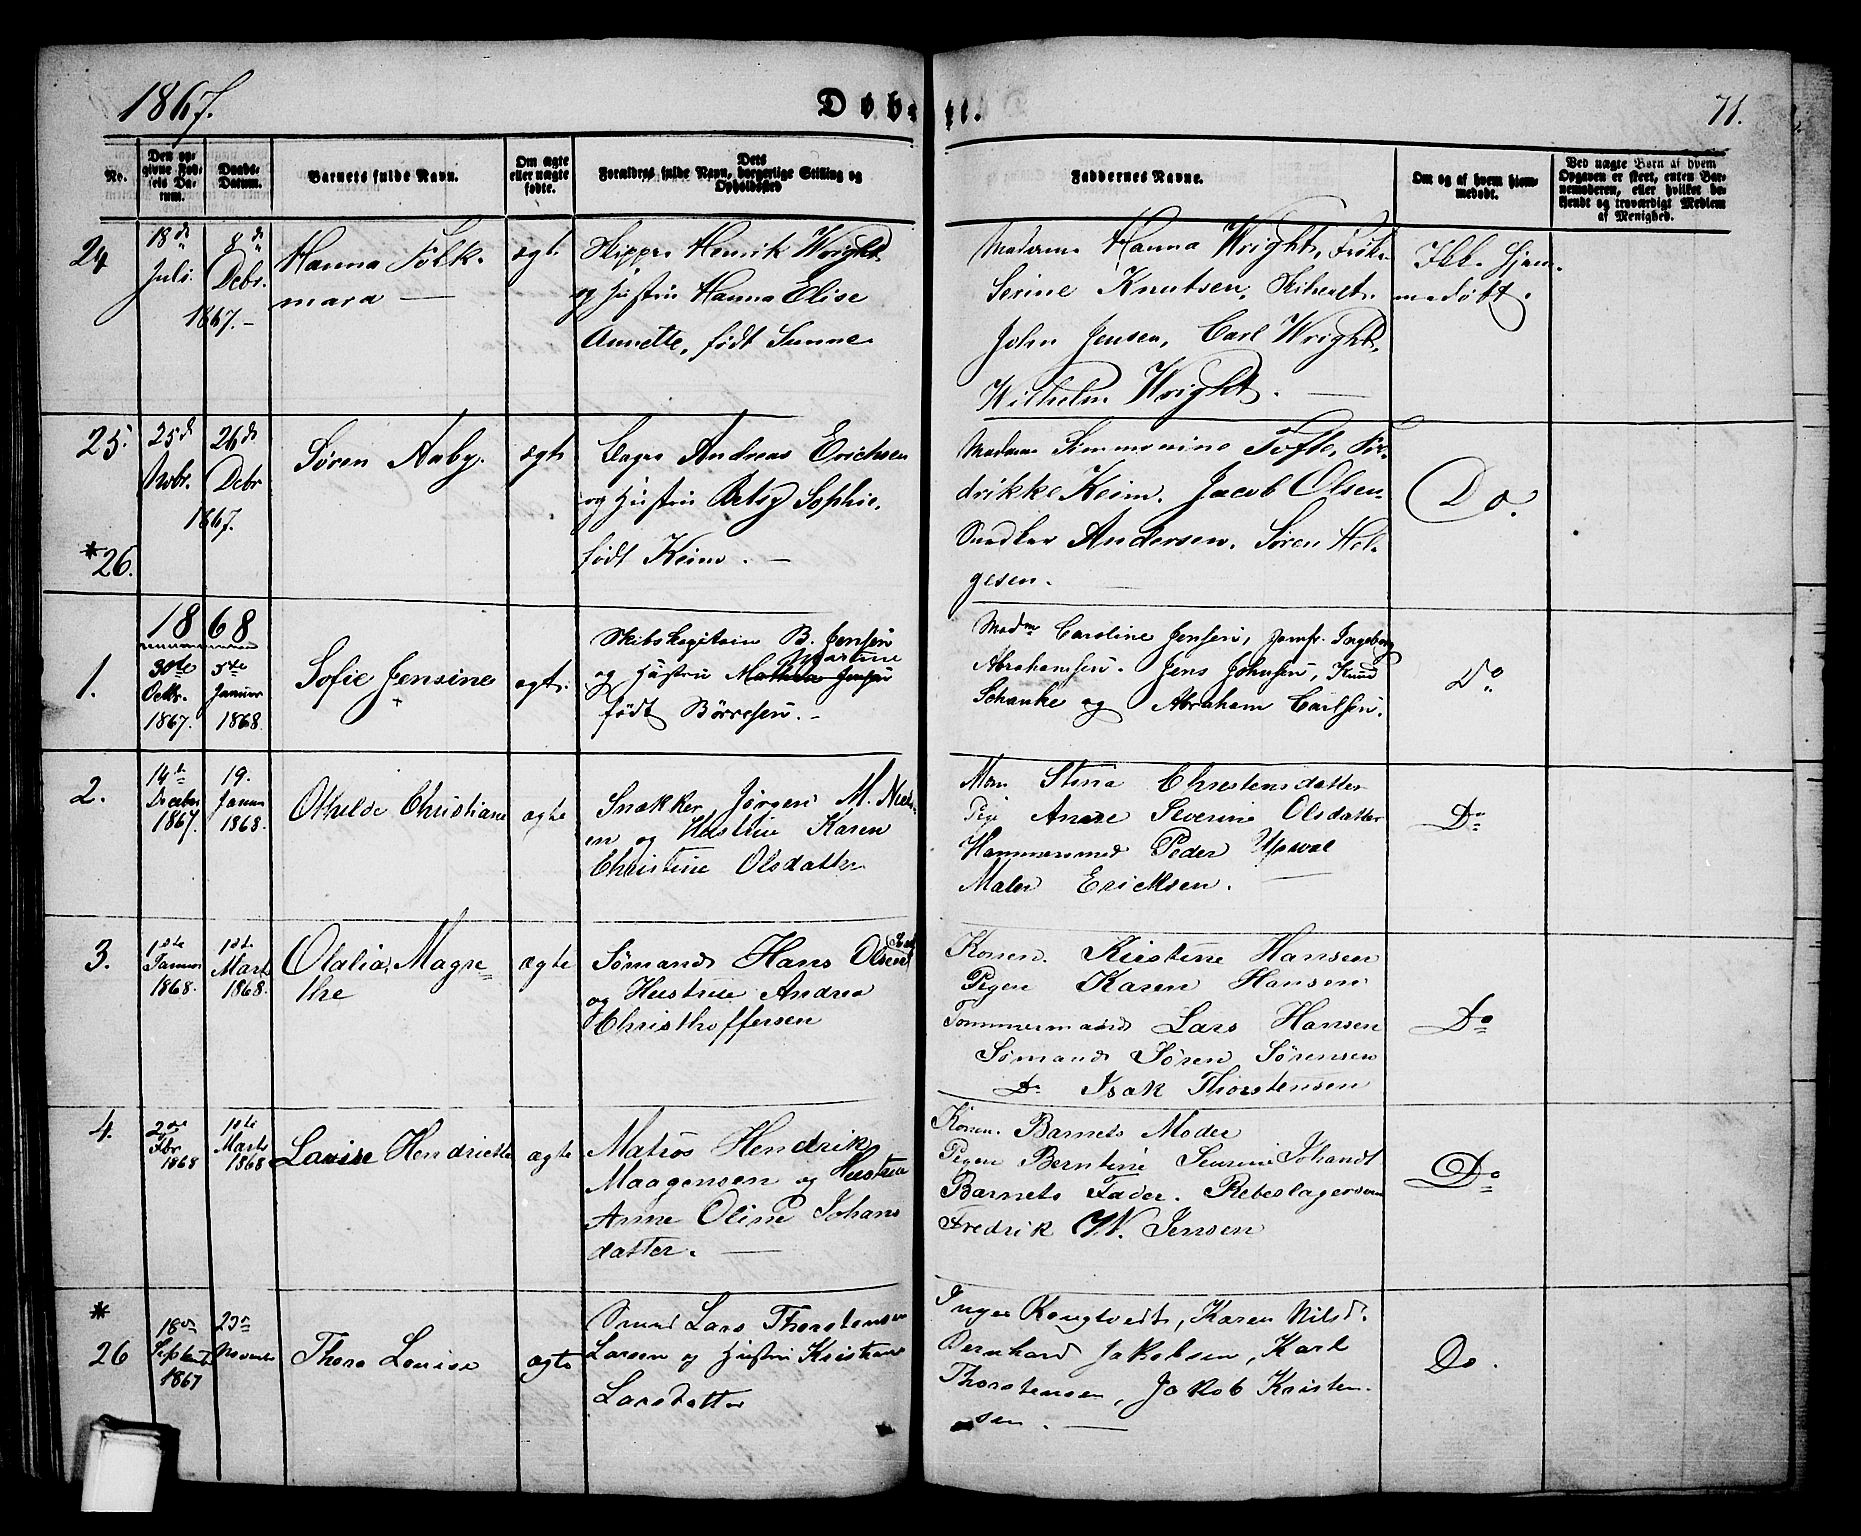 1867.
Døbte.
71.
No.
Den opgivne Fødsels Datum.
Daabs-Datum.
Barnets fulde Navn.
Om ægte eller uægte fødte.
Forældres fulde Navn, Dets borgerlige Stilling og Opholdssted
Faddernes Navne.
Om og af hvem hjemmedøbt.
Ved uægte Børn af hvem Opgaven er skeet, enten Barnemoderen, eller hvilket bekjendt og troværdigt Medlem af Menighed.
24
18de Juli
8de Debr.
1867.-
Hanna Folk-
mara —
ægte
Skipper Henrik Wright
og Hustru Hanna Elise
Annette, født Sunne
Madame Hanna Wright, Frøk.
Serine Knutsen,
John Jensen, Carl Wright,
Wilhelm Wright. —
Ikke hjem-
medøbt.
25.
25de Novbr.
26de Debr
1867.
Søren Aaby.
ægte
Bager Andreas Erichsen
og Hustru Betsy Sophie,
født Keim. —
Madame Simmonine Tofte, Fre-
drikke Keim. Jacob Olsen
Snedker Andersen. Søren Hel-
gesen.
Do.
*26.
1868
1.
30te Octbr. 1867.
5te Januar 1868.
Sofie Jensine
ægte.
Skibskapitain B. Jensen
Martine
og Hustru Mathea Jensen
født Børresen. -
Madm Caroline Jensen, Jomfr. Ingeborg
Abrahamsen. Jens Johnsen, Knud
Schanke og Abraham Carlsen.
Do.
2.
14de Decbr 1867.
19. Januar 1868.
Othilde Christiane
ægte
Snækker Jørgen M. Niels-
en og Hustrue Karen
Christine Olsdatter
Stina Christensdatter
Pige Anne Severine Olsdatter
Hammersmed Peder
Maler Ericksen.
Do
3.
1ste Januar 1868.
1ste Marts 1868.
Otalia, Magre-
the
ægte
Sømand Hans Olsen
og Hustrue Andrea
Christhoffersen
Konen. Kirstine Hansen
Pigen Karen Hansen
Tømmermand Lars Hansen
Sømand Søren Sørensen
Do Isak Thorstensen
Do
4.
2den Fbr 1868
1ste Marts 1868
Lovise Hendriette
ægte
Matros Hendrik
Maagensen og Hustrue
Anne Oline Johans
datter. —
Konen. Barnets Moder
Pigen Berntine Severine Johandt
Barnets Fader. Rebeslagersven
Fredrik W. Jensen
Do
*
26
18de Septemb 1867
23de Novemb
Thora Louise
ægte
Smed Lars Thorstensen
Larsen og Hustru Kristiane
Larsdatter
Inger Kongtvedt, Karen Nilsd.
Bernhard Jakobsen, Karl
Thorstensen, Jakob Kristen-
sen. —
Do.